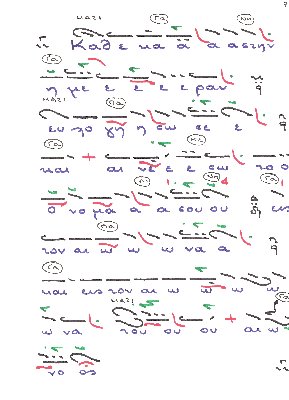 ΜΑΖΙ
Καθ ε κα α α α στην
η με ε ε ε ε ραν
ΜΑΖΙ
ευ λο γη η σω σε ε
και αι νε ε ε σω το ο
ο νο μα α α σου ου εις
τον αι ω ω ω να α
και εις τον αι ω ω ω ω
ΜΑΖΙ
ω να του ου ου αι ω
νο ος